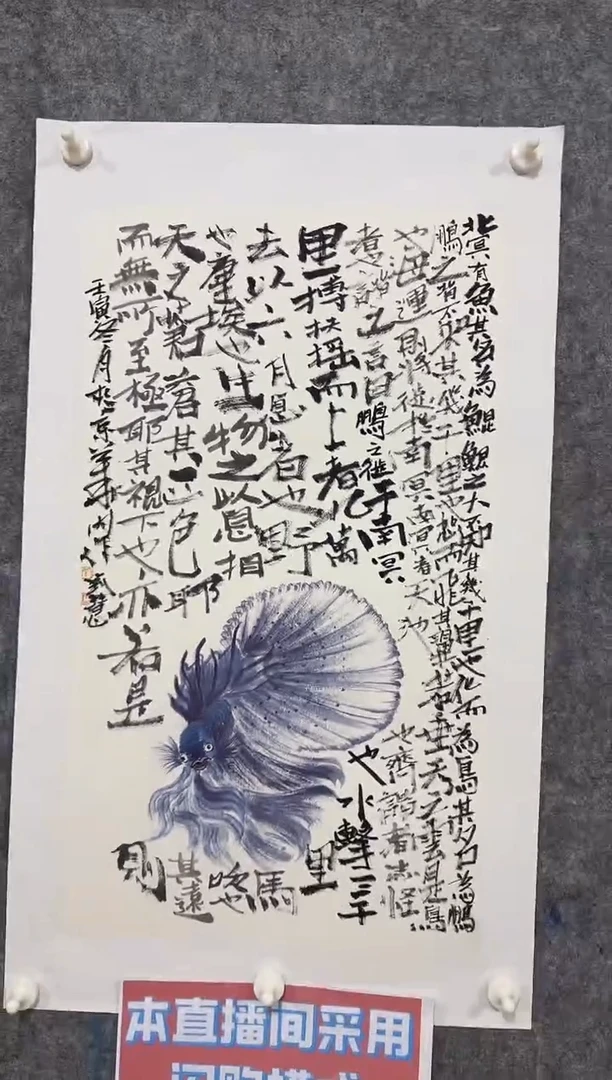 北冥有魚其名為鯤鯤之大不知其幾千里也化而為鳥其名為鵬
鵬之背不知其幾千里也怒而飛其翼若垂天之雲是鳥
也海運則將徙於南冥南冥者天池
也齊諧者志怪
者諧之言曰鵬之徙于南冥
也水擊三千
里摶扶搖而上者九萬
里
去以六月息者也野
馬
也塵埃也生物之以息相
吹也
天之蒼蒼其正色耶
其遠
而無所至極耶其視下也亦若是
則
壬寅冬月於京華
本直播间采用
闪购模式